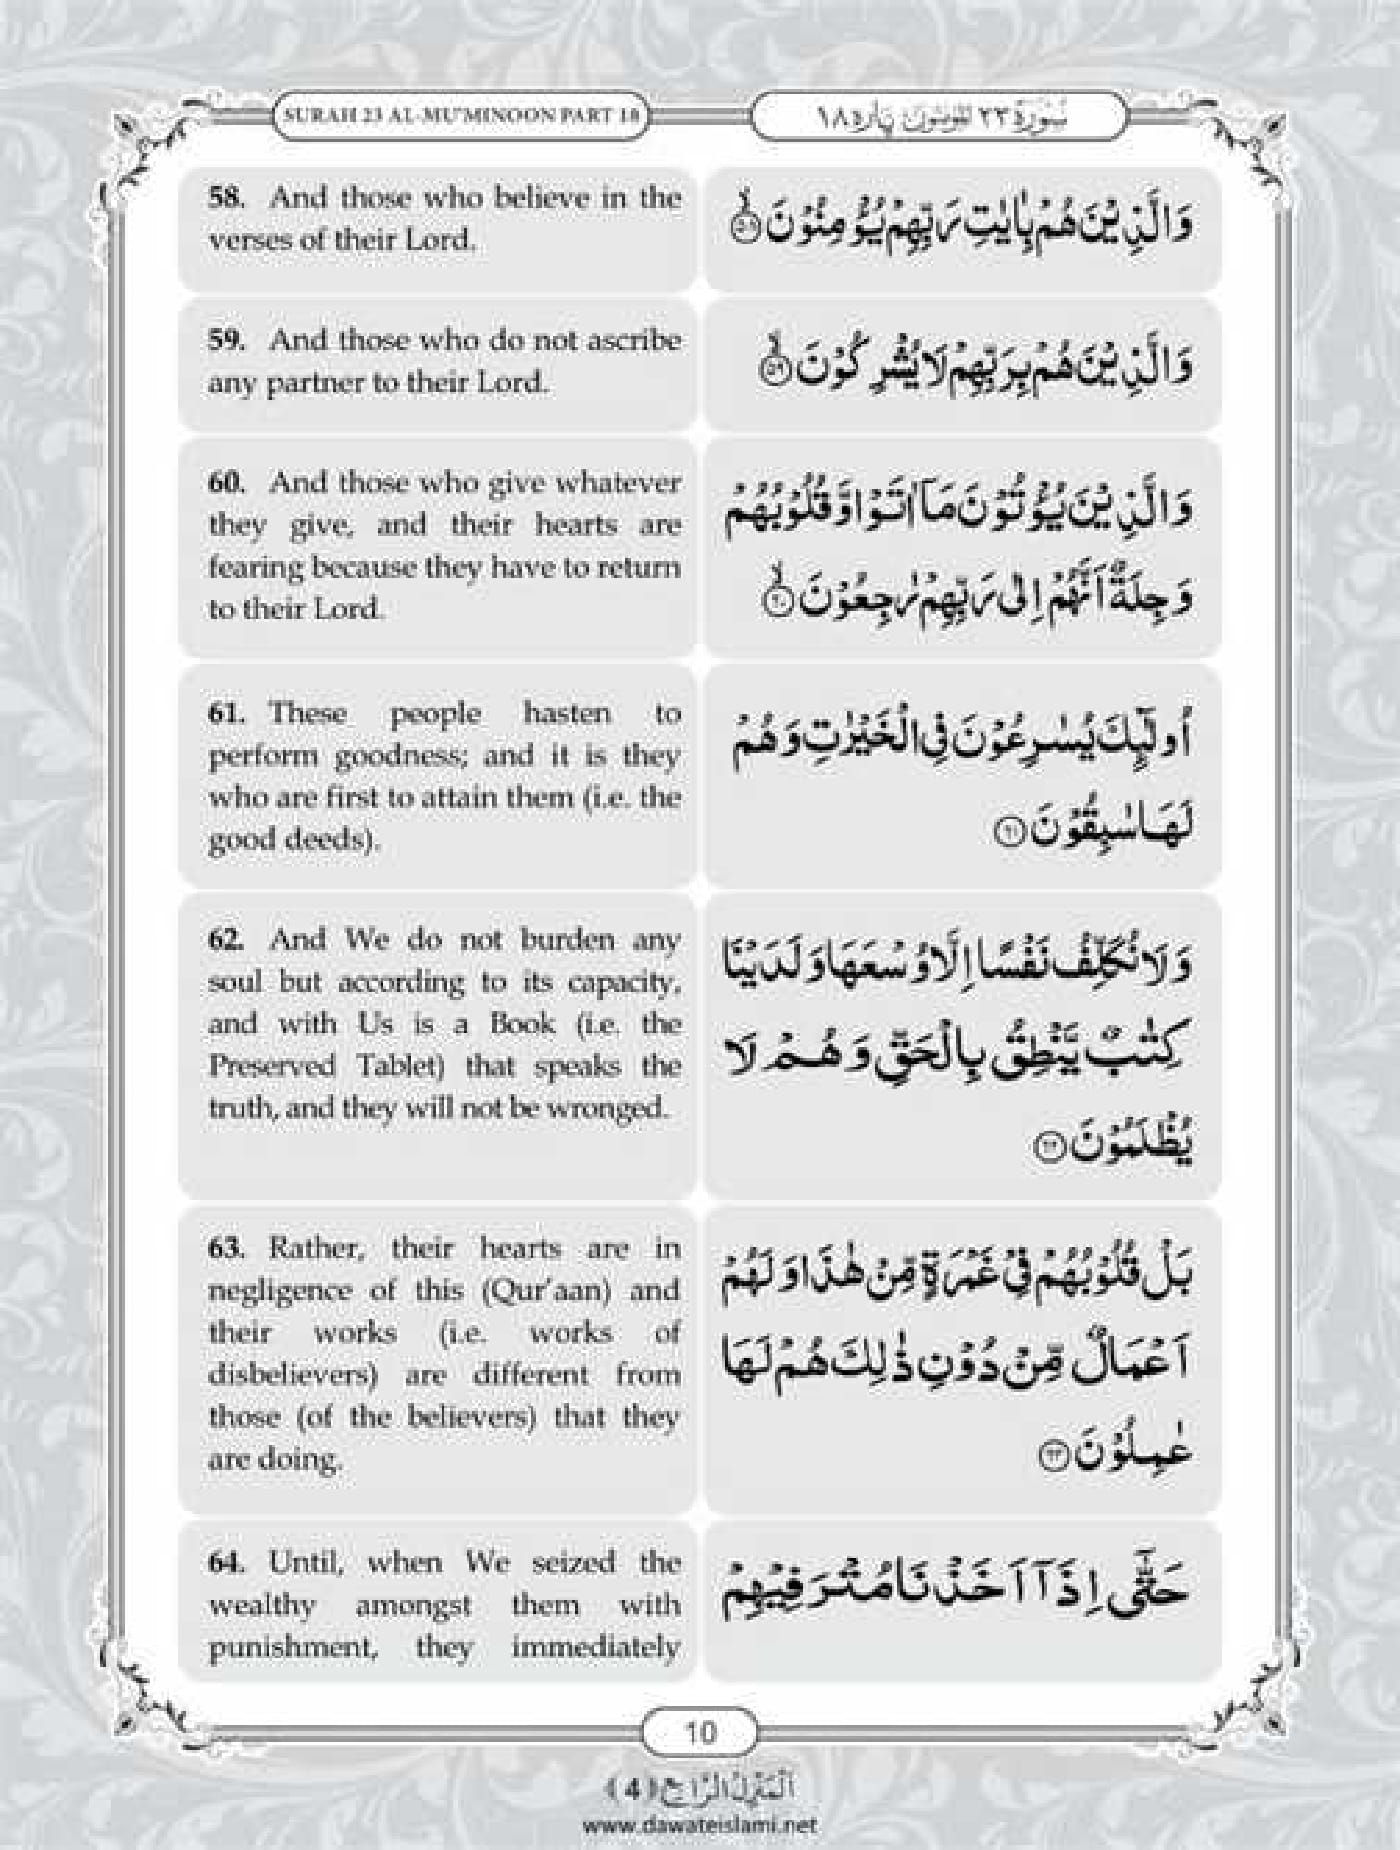 SURAH 23 AL-MU'MINOON PART 18
سُوْرَةُ ٢٣ الْمُؤْمِنُوْنَ پاره ١٨
58. And those who believe in the
verses of their Lord.
وَالَّذِيْنَ هُمْ بِاٰيٰتِ رَبِّهِمْ يُؤْمِنُوْنَ ۙ﴿٥٨﴾
59. And those who do not ascribe
any partner to their Lord.
وَالَّذِيْنَ هُمْ بِرَبِّهِمْ لَا يُشْرِكُوْنَ ۙ﴿٥٩﴾
60. And those who give whatever
they give, and their hearts are
fearing because they have to return
to their Lord.
وَالَّذِيْنَ يُؤْتُوْنَ مَاۤ اٰتَوْا وَّقُلُوْبُهُمْ
وَجِلَةٌ اَنَّهُمْ اِلٰى رَبِّهِمْ رٰجِعُوْنَ ۙ﴿٦٠﴾
61. These people hasten to
perform goodness; and it is they
who are first to attain them (i.e. the
good deeds).
أُولٰٓئِكَ يُسٰرِعُوْنَ فِى الْخَيْرٰتِ وَهُمْ
لَهَا سٰبِقُوْنَ ﴿٦١﴾
62. And We do not burden any
soul but according to its capacity,
and with Us is a Book (i.e. the
Preserved Tablet) that speaks the
truth, and they will not be wronged.
وَلَا نُكَلِّفُ نَفْسًا اِلَّا وُسْعَهَا وَلَدَيْنَا
كِتٰبٌ يَّنْطِقُ بِالْحَقِّ وَهُمْ لَا
يُظْلَمُوْنَ ﴿٦٢﴾
63. Rather, their hearts are in
negligence of this (Qur'aan) and
their works (i.e. works of
disbelievers) are different from
those (of the believers) that they
are doing.
بَلْ قُلُوْبُهُمْ فِىْ غَمْرَةٍ مِّنْ هٰذَا وَلَهُمْ
اَعْمَالٌ مِّنْ دُوْنِ ذٰلِكَ هُمْ لَهَا
عٰمِلُوْنَ ﴿٦٣﴾
64. Until, when We seized the
wealthy amongst them with
punishment, they immediately
حَتّٰۤى اِذَاۤ اَخَذْنَا مُتْرَفِيْهِمْ
10
اَلْمَنْزِلُ الرَّابِع (4)
www.dawateislami.net